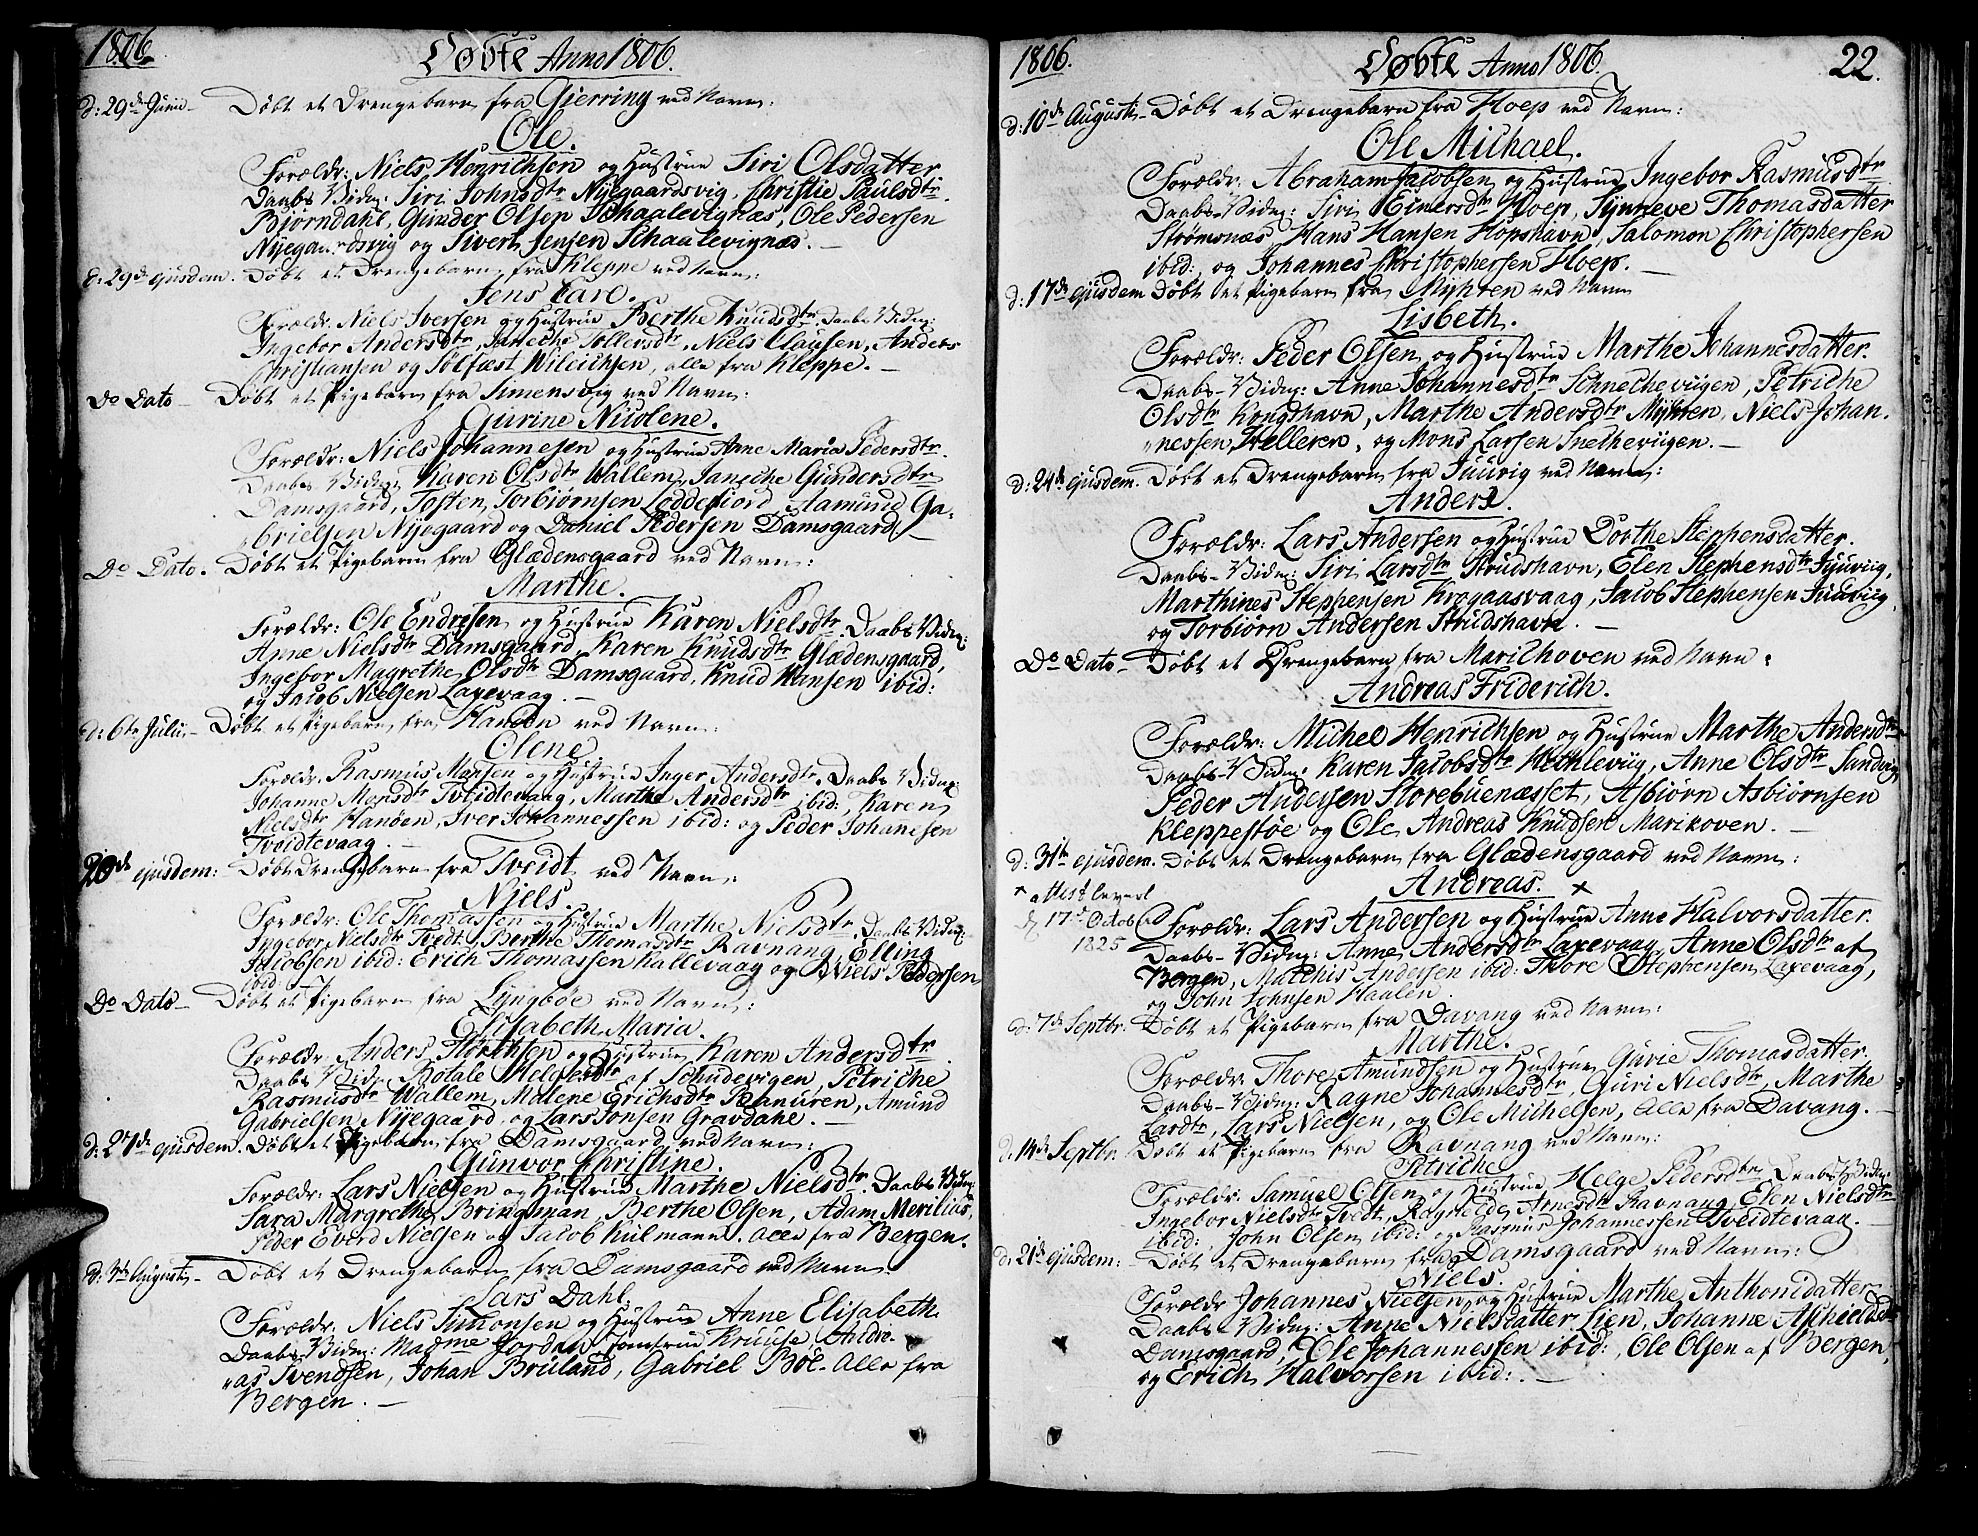 1806.
Døbte Anno 1806.
d: 29de Junii – Døbt et Drengebarn fra Gierring ved Navn:
Ole.
Forældr: Niels Henrichsen og Hustrue Siri Olsdatter.
Daabs-Vidn: Siri Johnsdtr Nyegaardsvig, Christie Paulsdtr
Bjørndahl, Gunder Olsen Schaalevignæs, Ole Pedersen
Nyegaardsvig og Sivert Jensen Schaalevignæs. –
d: 29de ejusdem. Døbt et Drengebarn fra Kleppe ved Navn:
Jens Carl.
Forældr: Niels Iversen og Hustrue Berthe Knudsdtr. Daabs-Vidn:
Ingebor Andersdtr, Janeche Tollersdtr, Niels Clausen, Anders
Christiansen og Sølfæst Wilichsen, alle fra Kleppe. –
Do Dato – Døbt et Pigebarn fra Simensvig ved Navn:
Gurine Nicolene.
Forældr: Niels Johannesen og Hustrue Anne Maria Pedersdtr.
Daabs-Vidn: Karen Olsdtr Wallem, Janeche Gundersdtr
Damsgaard, Tosten Torbiørnsen Loddefiord, Aamund Ga-
brielsen Nyegaard og Daniel Pedersen Damsgaard. –
Do Dato. Døbt et Pigebarn fra Glædensgaard ved Navn:
Marthe.
Forældr: Ole Endresen og Hustrue Karen Nielsdtr. Daabs-Vidn:
Anne Nielsdtr Damsgaard, Karen Knudsdtr Glædensgaard,
Ingebor Magrethe Olsdtr Damsgaard, Knud Hansen ibid:
og Jacob Nielsen Laxevaag. –
d: 6te Julii – Døbt et Pigebarn fra Hanøen ved Navn:
Olene
Forældr: Rasmus Monsen og Hustrue Inger Andersdtr. Daabs Vidn:
Johanne Monsdtr Tveidtevaag, Marthe Andersdtr ibid:, Karen
Nielsdtr Hanøen, Iver Johannessen ibid: og Peder Johannesen
Tveidtevaag. –
20de ejusdem: Døbt Drengebarn fra Tveidt ved Navn:
Niels.
Forældr: Ole Thomassen og Hustrue Marthe Nielsdtr. Daabs Vidn:
Ingebor Nielsdtr Tvedt, Berthe Thomasdtr Ravnang, Elling
Jacobsen ibid: Erich Thomassen Kallevaag og Niels Pedersen
ibid: –
Do Dato – Døbt et Pigebarn fra Lyngbøe ved Navn:
Elisabeth Maria.
Forældr: Anders Størchsen og Hustrue Karen Andersdtr.
Daabs Vidn: Botale Helgesdtr af Schudevigen, Petriche
Rasmusdtr Wallem, Malene Erichsdtr Ranuren, Amund
Gabrielsen Nyegaard, og Lars Jonsen Gravdahl. –
d: 27de ejusdem. Døbt et Pigebarn fra Damsgaard ved Navn:
Gunvor Christine.
Forældr: Lars Nielsen og Hustrue Marthe Nielsdtr. Daabs Vidn:
Sara Margrethe Bringman, Berthe Olsen, Adam Merilius,
Peder Everd Nielsen og Jacob Kulmann. alle fra Bergen.
d: 3de Augusti – Døbt et Drengebarn fra Damsgaard ved Navn:
Lars Dahl.
Forældr: Niels Simonsen og Hustrue Anne Elisabeth.
Daabs-Vidn: Madme Jordan, Jomfrue Kruuse, Andre-
as Svendsen, Johan Bruland, Gabriel Bøe. Alle fra
Bergen. –
1806.
Døbte Anno 1806.
22.
d: 10de Augusti – Døbt et Drengebarn fra Hoep ved Navn:
Ole Michael.
Forældr: Abraham Jacobsen og Hustrue Ingebor Rasmusdtr
Daabs-Vidn: Siri Einersdtr Hoep, Synneve Thomasdatter
Strømsnæs, Hans Hansen Hopshavn, Salomon Christophersen
ibid:, og Johannes Christophersen Hoep. –
d: 17de ejusdem Døbt et Pigebarn fra Myhren ved Navn
Lisbeth.
Forældr: Peder Olsen og Hustrue Marthe Johannesdatter.
Daabs-Vidn: Anne Johannesdtr Schnecheviigen, Petriche
Olsdtr Kongshavn, Marthe Andersdtr Myhren, Niels Johan-
nessen Helleren, og Mons Larsen Snecheviigen. –
d: 24de ejusdem. Døbt et Drengebarn fra Juuvig ved Navn:
Anders.
Forældr: Lars Andersen og Hustrue Dorthe Stephensdatter.
Daabs-Vidn: Siri Larsdtr Strudshavn, Elen Stephensdtr Juuviig,
Marthines Stephensen Krogaasvaag, Jacob Stephensen Juuviig,
og Torbiørn Andersen Strudshavn. –
Do Dato – Døbt et Drengebarn fra Marichoven ved Navn:
Andreas Friderich.
Forældr: Michel Henrichsen og Hustrue Marthe Andersdtr
Daabs-Vidn: Karen Jacobsdtr Hechleviig, Anne Olsdtr Sandvig
Peder Andersen Storebuenæsset, Asbiørn Asbiørnsen
Kleppestøe og Ole Andreas Knudsen Marikoven. –
d: 31te ejusdem. Døbt et Drengebarn fra Glædensgaard ved Navn:
Andreas. ×
× attest leveret
d 17de Octob
1825
Forældr: Lars Andersen og Hustrue Anne Halvorsdatter.
Daabs-Vidn: Anne Andersdtr Laxevaag, Anne Olsdtr af
Bergen, Matthis Andersen ibid: Thore Stephensen Laxevaag,
og John Johnsen Haalen
d: 7de Septbr. Døbt et Pigebarn fra Davang ved Navn:
Marthe.
Forældr: Thore Amundsen og Hustrue Gurie Thomasdatter.
Daabs-Vidn: Ragne Johannesdtr, Guri Nielsdtr, Marthe
Larsdtr, Lars Nielsen, og Ole Michelsen, alle fra Davang. –
d: 14de Septbr. Døbt et Pigebarn fra Ravnang ved Navn:
Petriche
Forældr: Samuel Olsen og Hustrue Helge Pedersdtr. Daabs-Vidn:
Ingebor Nielsdtr Tvedt, Ragnilde Arnesdtr Ravnang, Elen Nielsdtr
ibid:, John Olsen ibid: og Rasmus Johannessen Tveidtevaag.
d: 21de ejusdem: – Døbt et Drengebarn fra Damsgaard ved Navn:
Niels.
Forældr: Johannes Nielsen og Hustrue Marthe Anthonidatter
Daabs-Vidn: Anne Nielsdatter Lien, Johanne Aschieldsdtr
Damsgaard, Ole Johannessen ibid:, Ole Olsen af Bergen,
og Erich Halvorsen ibid:. –